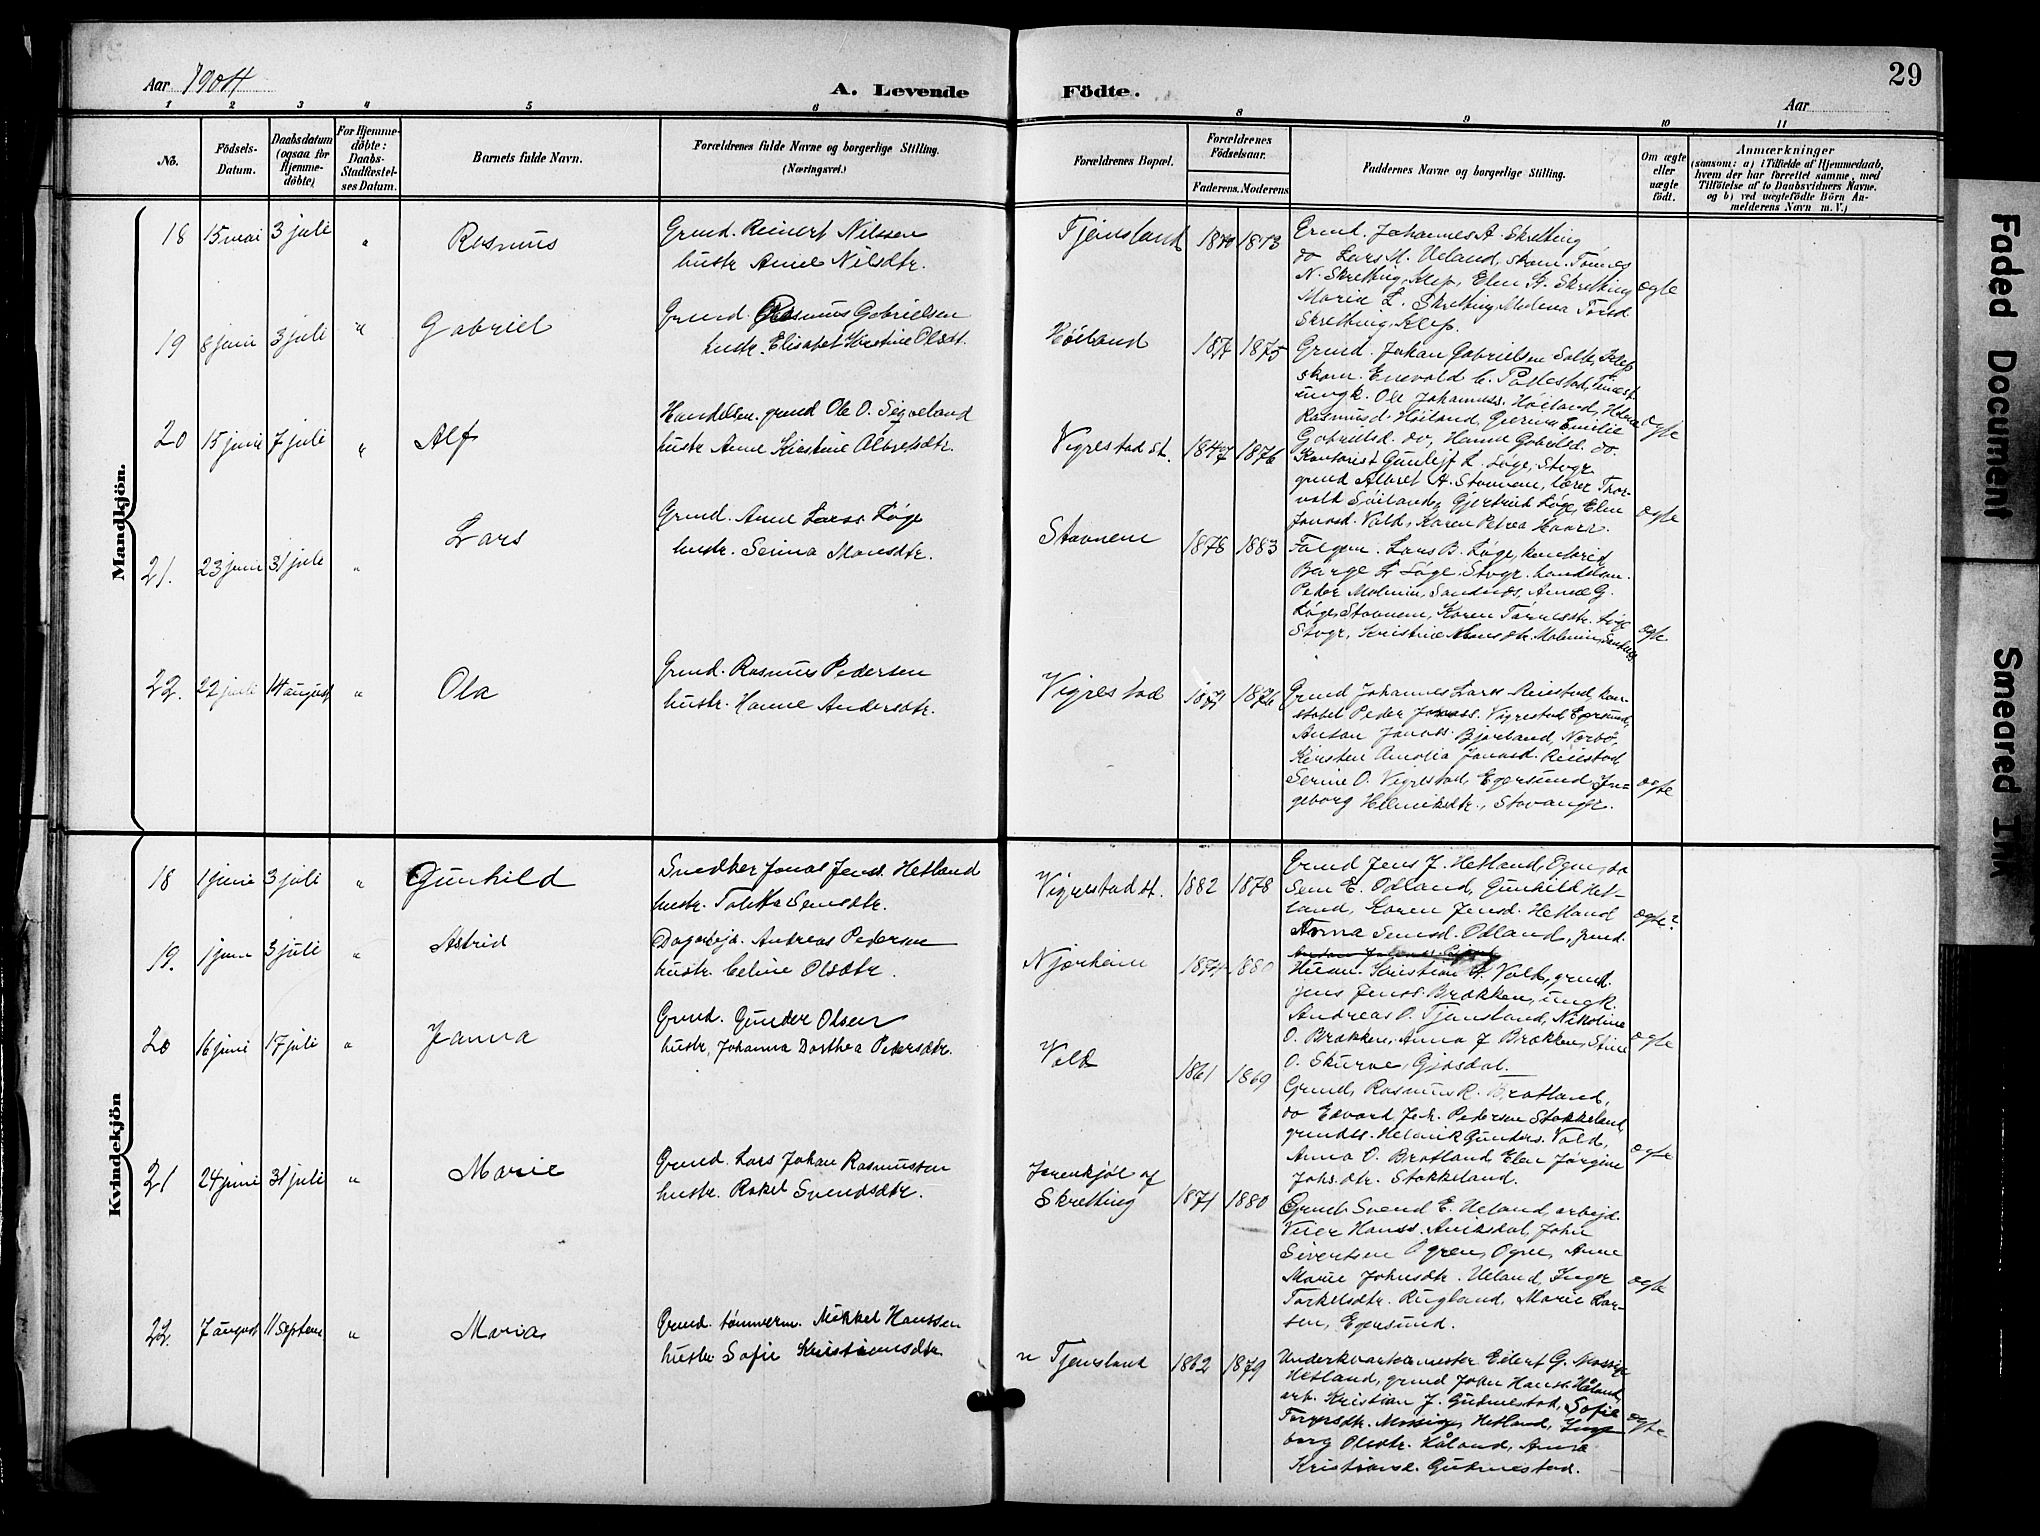 Aar 1904
A. Levende Födte.
Aar
29
1 2 3 4 5 6 8 9 10 11
No.
Födsels-
Datum.
Daabsdatum
(ogsaa for
Hjemme-
döbte)
For Hjemme-
döbte:
Daabs-
Stadfæstel-
ses Datum.
Barnets fulde Navn.
Forældrenes fulde Navne og borgerlige Stilling.
(Næringsvei.)
Forældrenes Bopæl.
Forældrenes
Födselsaar.
Faderens. Moderens
Faddernes Navne og borgerlige Stilling.
Om ægte
eller
uægte
födt.
Anmærkninger
(saasom: a) i Tilfælde af Hjemmedaab,
hvem der har forrettet samme, med
Tilföielse af to Daabsvidners Navne.
og b) ved uægtefödte Börn An-
melderens Navn m. V.)
Mandkjön.
18 15 mai 3 juli " Rasmus
Grmd. Reinert Nilssen
hustr Anne Nilsdtr.
Tjensland 1873
Grmd. Johannes A. Skretting
do Lars M. Ueland, skom. Tönnes
N. Skretting, Klep, Elen
Marie L. Skretting
Skretting, Klep.
ægte
19 8 juni 3 juli " Gabriel
Grmd. Rasmus Gabrielsen
hustr. Elisabet Kirstine Olsdt.
Höiland 1875
Grmd. Johan Gabrielsen Salte, Klep
skom. Enevold
ungk. Ole Johanness. Höiland,
Rasmusd. Höiland, Emilie
Gabrielsd. do, Hanne Gabrielsd. do.
ægte
20 15 juni 7 juli " Alf
Handelsm. grmd Ole O. Sigveland
hustr Anne Kirstine Albretsdtr.
Vigrestad st. 1847 1876
Kontorist Gunleif L. Løge, Stvgr
grmd Albret A. Stavnem, lærer Thor-
vald Søiland, Gjertrud Løge, Elen
Jonasd. Vold, Karen Petrea Haara.
ægte
21. 23 juni 31 juli " Lars
Grmd. Arne Larss. Løge
hustr. Serina Monsdtr.
Stavnem 1878 1883
Lars B. Løge, kontorist
Børge L Løge, Stvgr. handelsm.
Peder Molmin, Sandnes, Anne G.
Løge, Stavnem, Karen Løge
Stvgr, Kristine Monsdtr. Molmin, Sandnes
ægte
22. 22 juli 14 august " Ola
Grmd. Rasmus Pedersen
hustr. Hanne Andersdtr.
Vigrestad 1876
Grmd Johannes Larss Reiestad, kon-
stabel Peder Vigrestad Egersund,
Anton Jonass. Bjorland, Nerbö,
Kirsten Amalia Jonasd. Reiestad
Serine O. Vigrestad, Egersund, In-
geborg Henriksdtr., Stavanger.
ægte
Kvindekjön
18 1 juni 3 juli " Gunhild
Snedker Jonas Jensd. Hetland
hustr. Semsdtr.
Vigrestad st. 1882 1878
Grmd Jens J. Hetland, Ogne, do
Sem E. Odland, Gunhild Het-
land, Karen Jensd. Hetland
Anna Semsd. Odland,
ægte?
19. 1 juni 3 juli " Astrid
Dagarbejd. Andreas Pedersen
hustr. Celine Olsdtr.
Njærheim 1874 1880
Kristian A. Vold, grmd.
Jens Jenss. Brækken, ungk.
Andreas O. Tjensland, Nikoline
O. Brækken, Anna J Brækken, Stine
O. Skurve, Gjesdal.
ægte
20 16 juni 17 juli " Janna
Grmd. Gunder Olsen
hustr, Johanna Dorthea Pedersdtr.
Vold 1861 1869
Grmd, Rasmus R. Bratland,
do Edvard Joh. Pedersen Stokkeland
grmds. Henrik Gunders. Vold,
Anna O. Bratland Elen Jörgine
Johs.dtr. Stokkeland.
ægte
21 24 juni 31 juli " Marie
Grmd. Lars Johan Rasmussen
hustr. Rakel Svendsdtr.
af
Skretting 1871 1880
Grmd. Svend E. Ueland, arbejd.
Veier Hanss. Aniksdal, John
Sivertsen Ogren, Ogne, Anne
Marie Johnsdtr. Ueland, Inger
Torkelsdtr. Rugland, Marie Lar-
sen, Egersund.
ægte
22. 7 august 11 septemb " Maria
Grmd. tömmerm. Mikkel Hanssen
hustr Sofie Kristiansdtr
n Tjensland 1862 1879
Underkvartermester Eilert G. Mossige
Hetland, grmd John Hanss. Håland
arb. Kristian J. Gudmestad, Sofie
Mossige, Hetland, Inge-
borg Olsdtr. Håland, Anna
Kristiansd. Gudmestad.
ægte
Faded Document
Smeared Ink